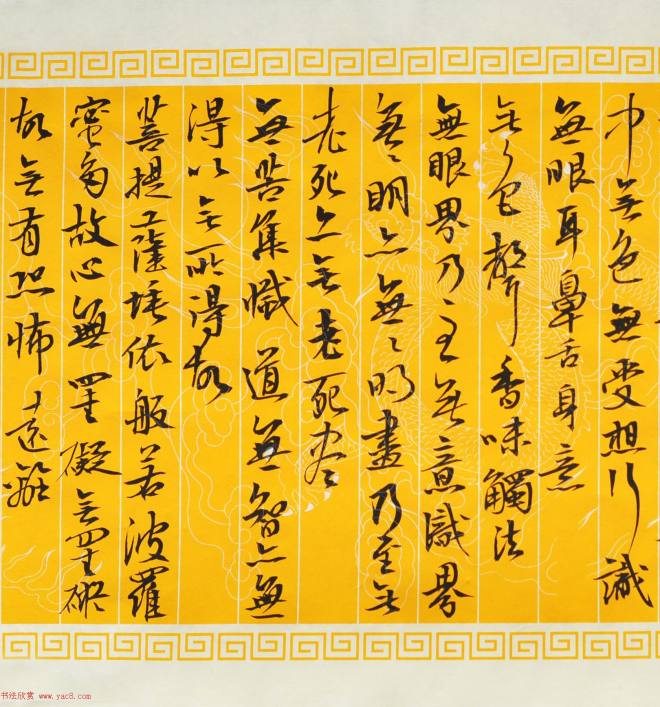 中無色無受想行識
無眼耳鼻舌身意
無色聲香味觸法
無眼界乃至無意識界
無無明亦無無明盡乃至無
老死亦無老死盡
無苦集滅道無智亦無
得以無所得故
菩提薩埵依般若波羅
蜜多故心無罣礙無罣礙
故無有恐怖遠離
书法欣赏 www.yac8.com